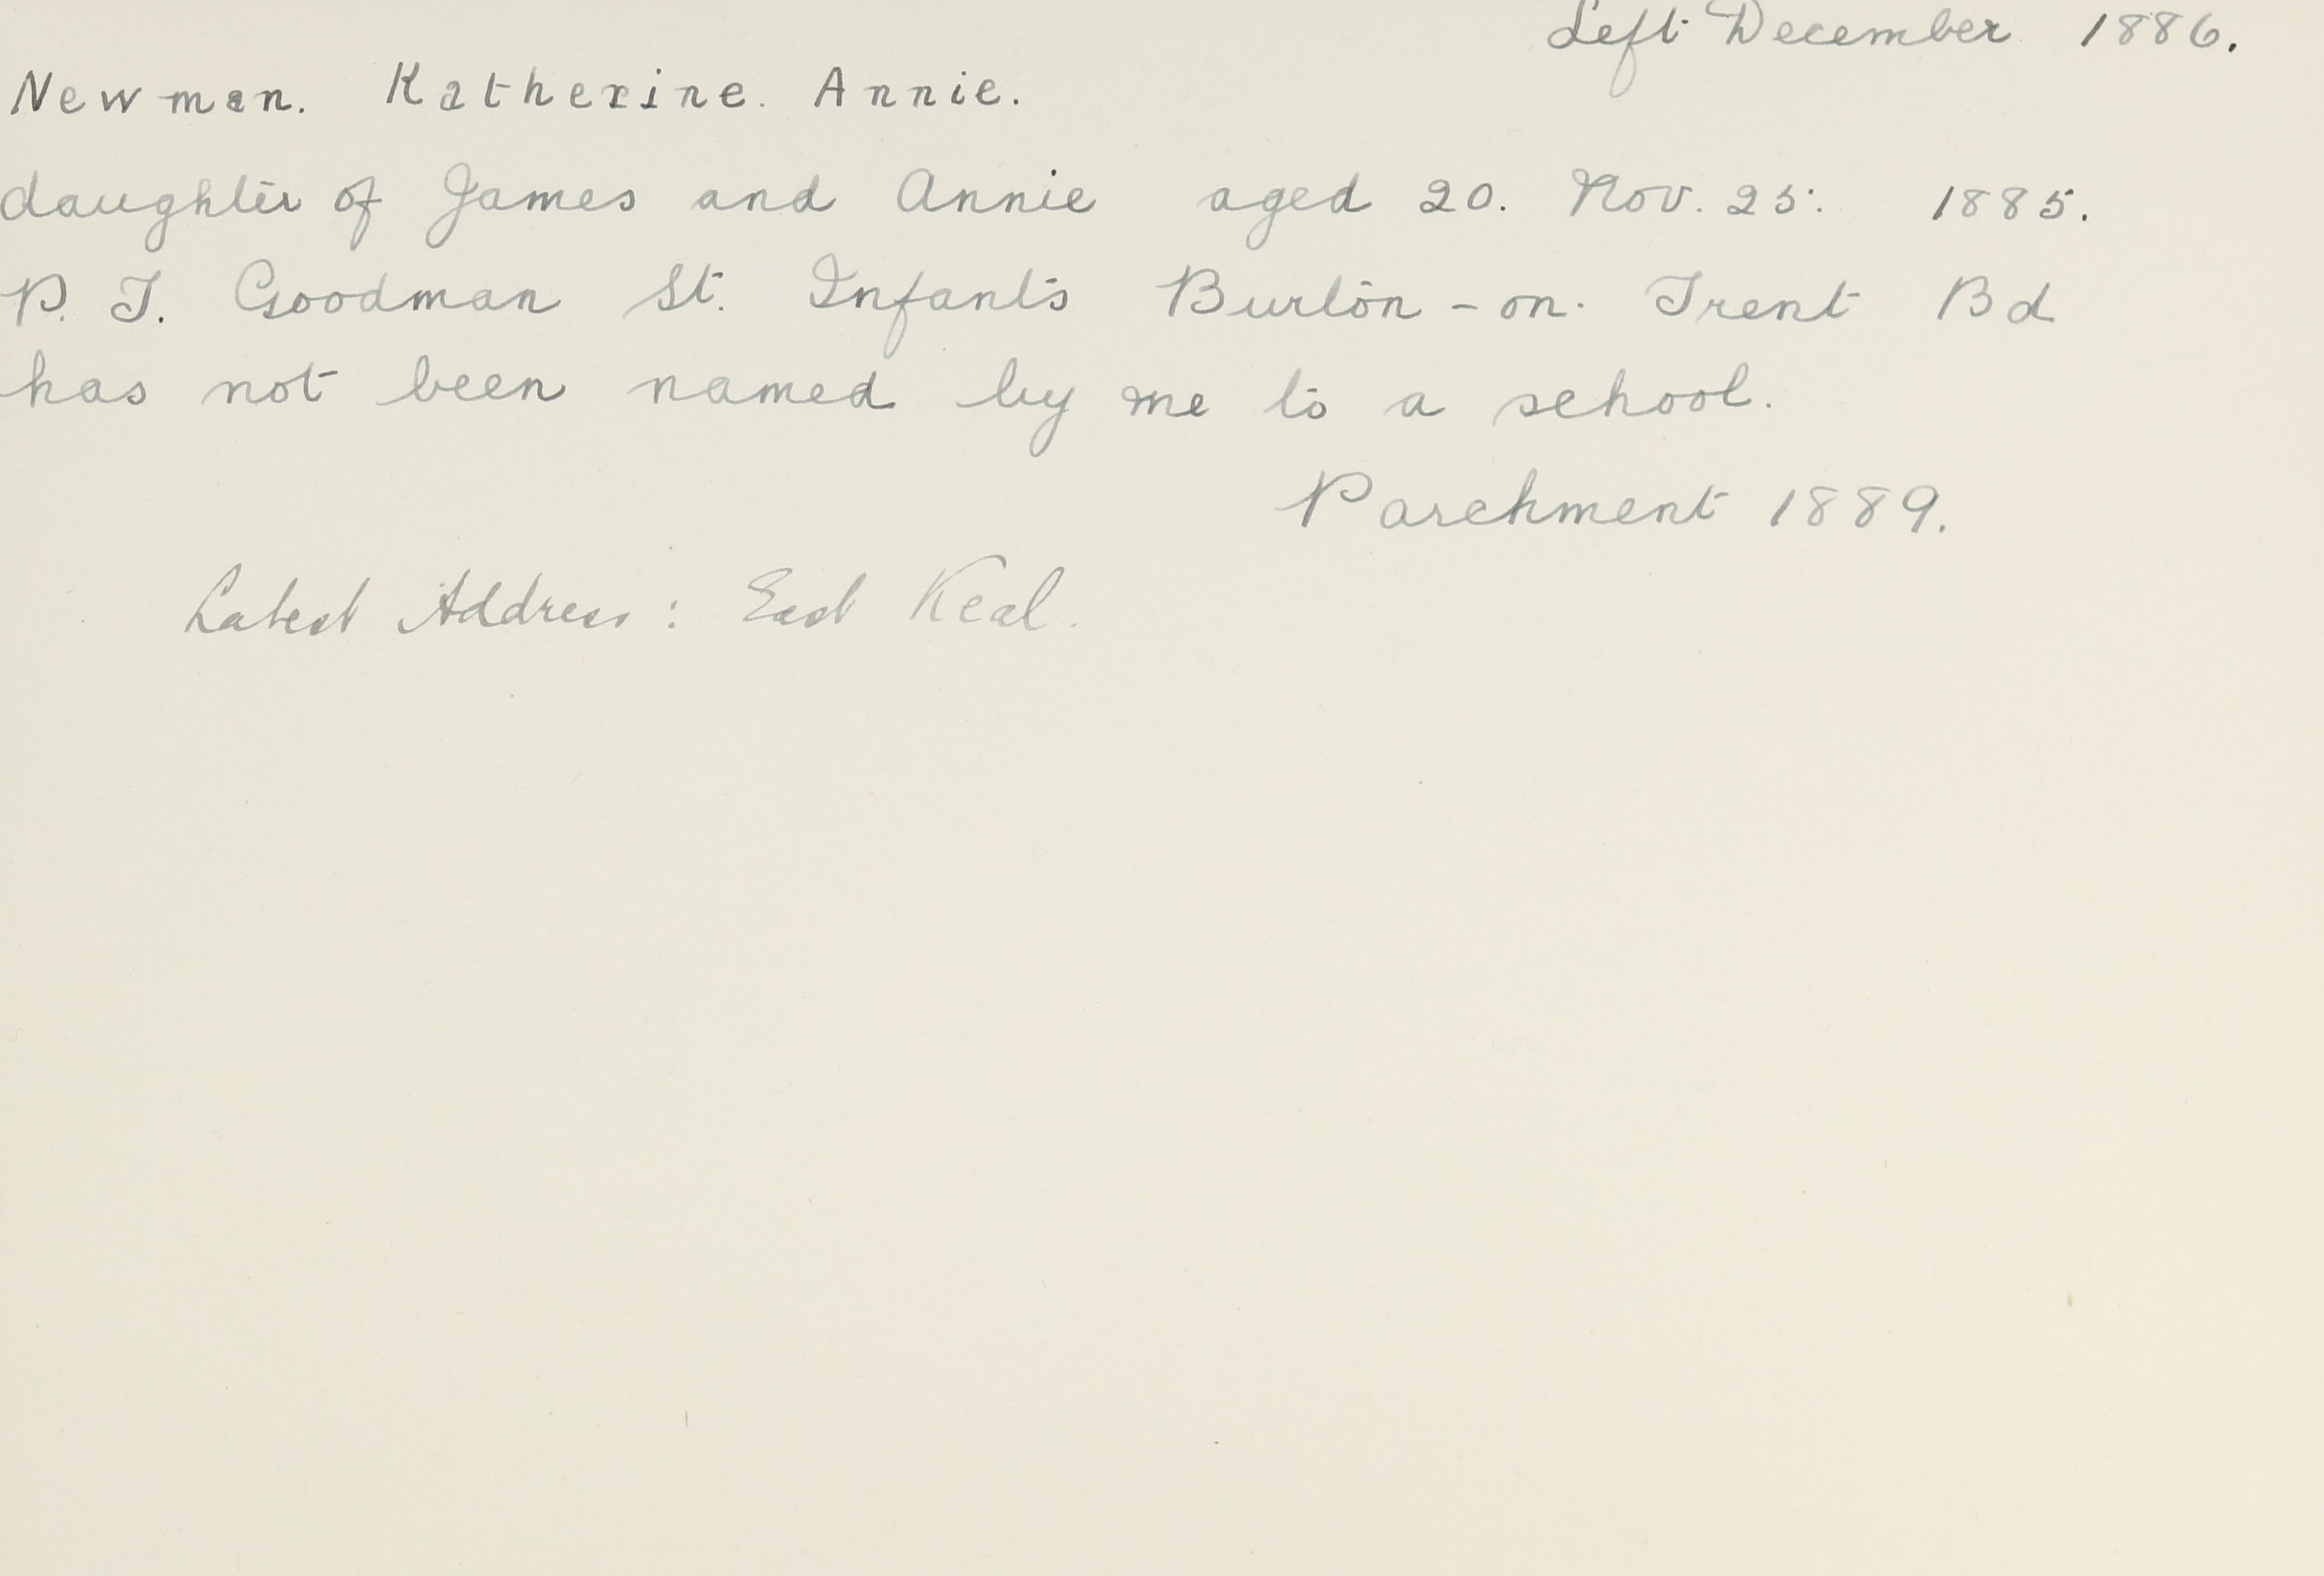 Left December 1886.
Newman. Katherine. Annie.
daughter of James and Annie aged 20. Nov. 25: 1885.
P. T. Goodman St. Infants Burton-on-Trent Bd
has not been named by me to a school.
Parchment 1889.
Latest Address: East Keal.